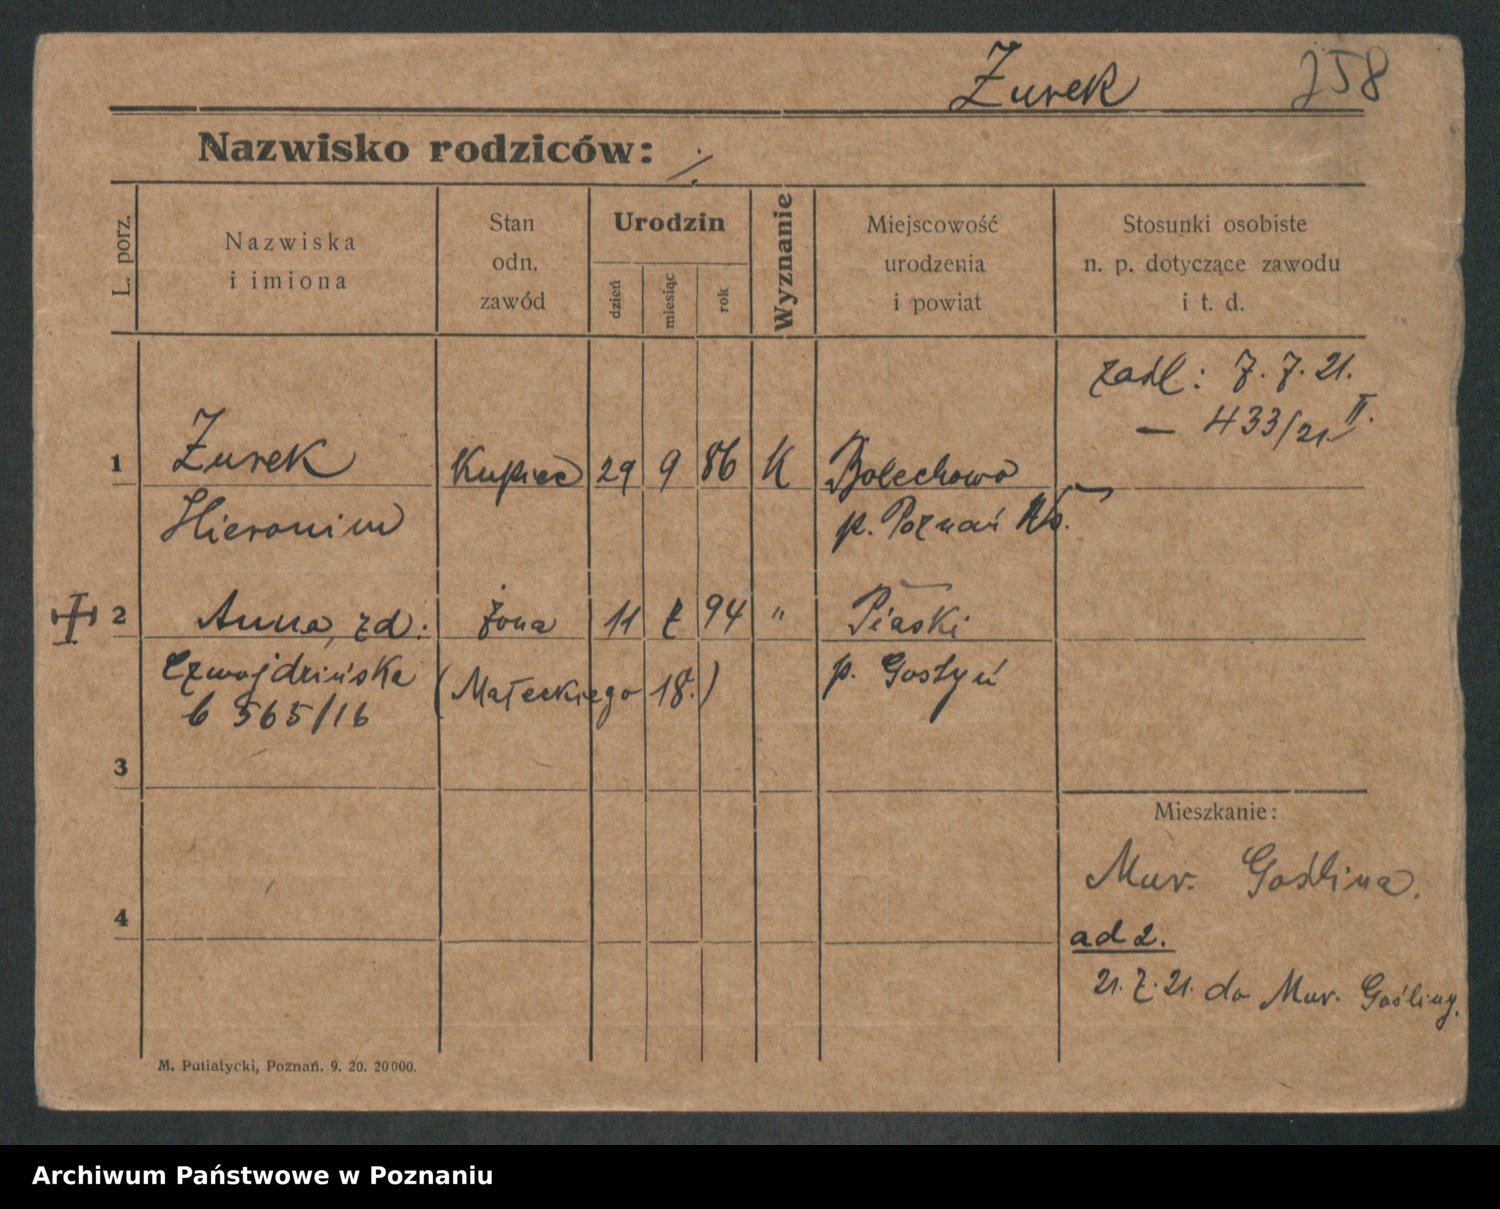 Żurek 758
Nazwisko rodziców: ./.
L. porz.
Nazwiska
i imiona
Stan
odn.
zawód
Urodzin
dzień
miesiąc
rok
Wyznanie
Miejscowość
urodzenia
i powiat
Stosunki osobiste
n. p. dotyczące zawodu
i t. d.
zaśl: 7. 7. 21.
— 433/21 II.
1 Żurek Kupiec 29 9 86 K Bolechowo
Hieronim p. Poznań
2 Anna, zd. żona 11 94 " Piaski
Czwojdzińska (Małeckiego 18.) p. Gostyń
b 565/16
3
Mieszkanie:
Mur. Goślina.
4
ad 2.
21. 7. 21. do Mur. Gośliny.
M. Putiatycki, Poznań. 9. 20. 20000.
Archiwum Państwowe w Poznaniu